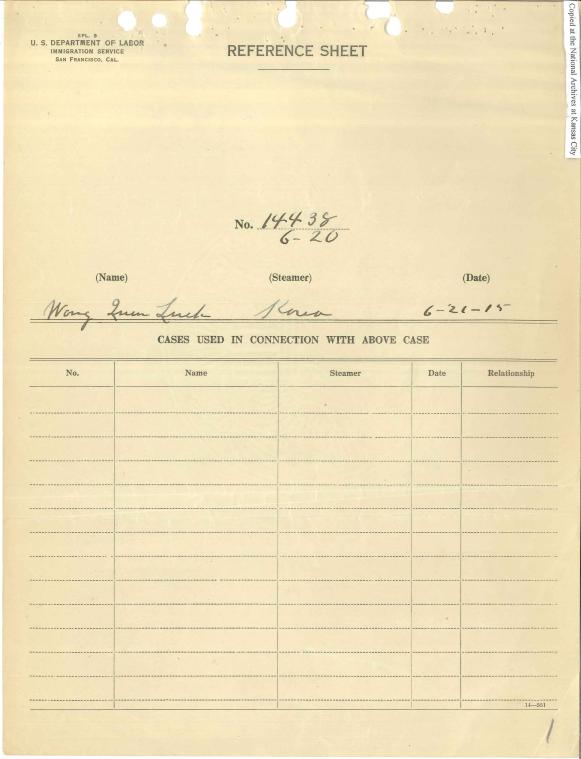 SPL. 9
U. S. DEPARTMENT OF LABOR
IMMIGRATION SERVICE
SAN FRANCISCO, CAL.
REFERENCE SHEET
Copied at the National Archives at Kansas City
No. 14438
6-20
(Name) (Steamer) (Date)
Wong Quen Luck Korea 6-21-15
CASES USED IN CONNECTION WITH ABOVE CASE
No. Name Steamer Date Relationship
14—551
1